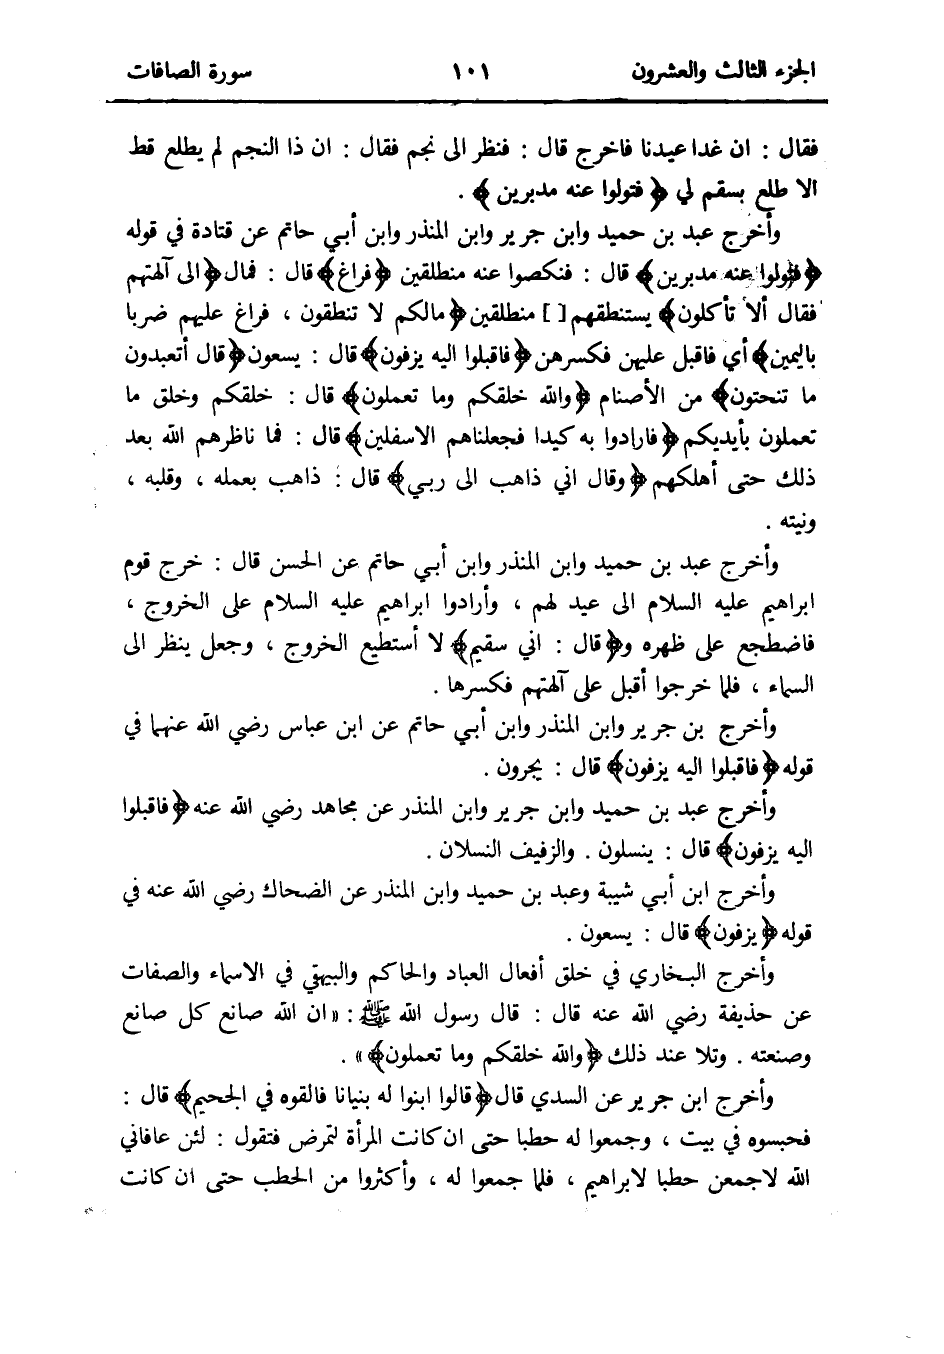 الجزء الثالث والعشرون ١٠١ سورة الصافات
فقال : ان غدا عيدنا فاخرج قال : فنظر الى نجم فقال : ان ذا النجم لم يطلع قط
الا طلع بسقم لي ﴿ فتولوا عنه مدبرين ﴾ .
وأخرج عبد بن حميد وابن جرير وابن المنذر وابن أبي حاتم عن قتادة في قوله
﴿فتولوا عنه مدبرين﴾ قال : فنكصوا عنه منطلقين ﴿فراغ﴾ قال : فمال ﴿الى آلهتهم
فقال ألا تأكلون﴾ يستنطقهم [ ] منطلقين ﴿مالكم لا تنطقون ، فراغ عليهم ضربا
باليمين﴾ أي فاقبل عليهن فكسرهن ﴿فاقبلوا اليه يزفون﴾ قال : يسعون ﴿قال أتعبدون
ما تنحتون﴾ من الأصنام ﴿والله خلقكم وما تعملون﴾ قال : خلقكم وخلق ما
تعملون بأيديكم ﴿فارادوا به كيدا فجعلناهم الاسفلين﴾ قال : فما ناظرهم الله بعد
ذلك حتى أهلكهم ﴿وقال اني ذاهب الى ربي﴾ قال : ذاهب بعمله ، وقلبه ،
ونيته .
وأخرج عبد بن حميد وابن المنذر وابن أبي حاتم عن الحسن قال : خرج قوم
ابراهيم عليه السلام الى عيد لهم ، وأرادوا ابراهيم عليه السلام على الخروج ،
فاضطجع على ظهره و﴿قال : اني سقيم﴾ لا أستطيع الخروج ، وجعل ينظر الى
السماء ، فلما خرجوا أقبل على آلهتهم فكسرها .
وأخرج بن جرير وابن المنذر وابن أبي حاتم عن ابن عباس رضي الله عنهما في
قوله ﴿فاقبلوا اليه يزفون﴾ قال : يجرون .
وأخرج عبد بن حميد وابن جرير وابن المنذر عن مجاهد رضي الله عنه ﴿فاقبلوا
اليه يزفون﴾ قال : ينسلون . والزفيف النسلان .
وأخرج ابن أبي شيبة وعبد بن حميد وابن المنذر عن الضحاك رضي الله عنه في
قوله ﴿يزفون﴾ قال : يسعون .
وأخرج البخاري في خلق أفعال العباد والحاكم والبيهقي في الاسماء والصفات
عن حذيفة رضي الله عنه قال : قال رسول الله ﷺ : «ان الله صانع كل صانع
وصنعته . وتلا عند ذلك ﴿والله خلقكم وما تعملون﴾» .
وأخرج ابن جرير عن السدي قال ﴿قالوا ابنوا له بنيانا فالقوه في الجحيم﴾ قال :
فحبسوه في بيت ، وجمعوا له حطبا حتى ان كانت المرأة لتمرض فتقول : لئن عافاني
الله لاجمعن حطبا لابراهيم ، فلما جمعوا له ، وأكثروا من الحطب حتى ان كانت